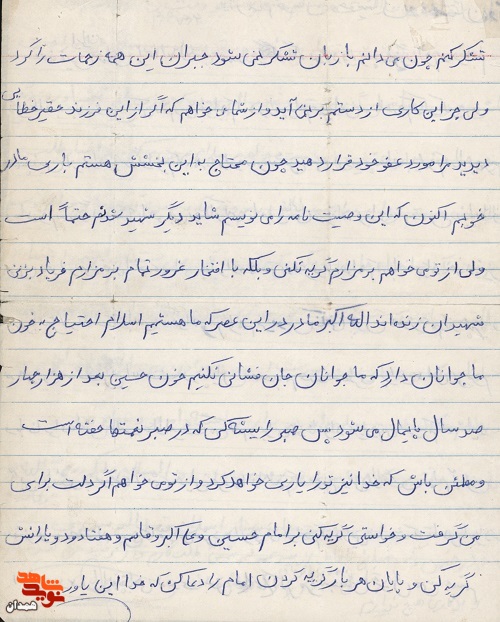 تشکر کنم چون می دانم با زبان تشکر نمی شود جبران این همه زحمات را کرد
ولی جز این کاری از دستم بر نمی آید و از شما می خواهم که اگر از این فرزند حقیر خطایی
دیدید مرا مورد عفو خود قرار دهید چون محتاج به این بخشش هستم باری مادر
خوبم اکنون که این وصیت نامه را می نویسم شاید دیگر شهید شوم حتماً است
ولی از تو می خواهم بر مزارم گریه نکنی و بلکه با افتخار غرور تمام بر مزارم فریاد بزنی
شهیدان زنده اند الله اکبر مادر در این عصر که ما هستیم اسلام احتیاج به خون
ما جوانان دارد که ما جوانان جان فشانی نکنیم خون حسین بعد از هزار چهار
صد سال پایمال می شود پس صبر را پیشه کن که در صبر نعمتها خفته است
و مطمئن باش که خدا نیز تو را یاری خواهد کرد و از تو می خواهم اگر دلت برای
می گرفت و خواستی گریه کنی بر امام حسین و علی اکبر و قاسم و هفتاد و دو یارانش
گریه کن و پایان هر بار گریه کردن امام را دعا کن که خدا این یاور
شاهد
نوید
همدان